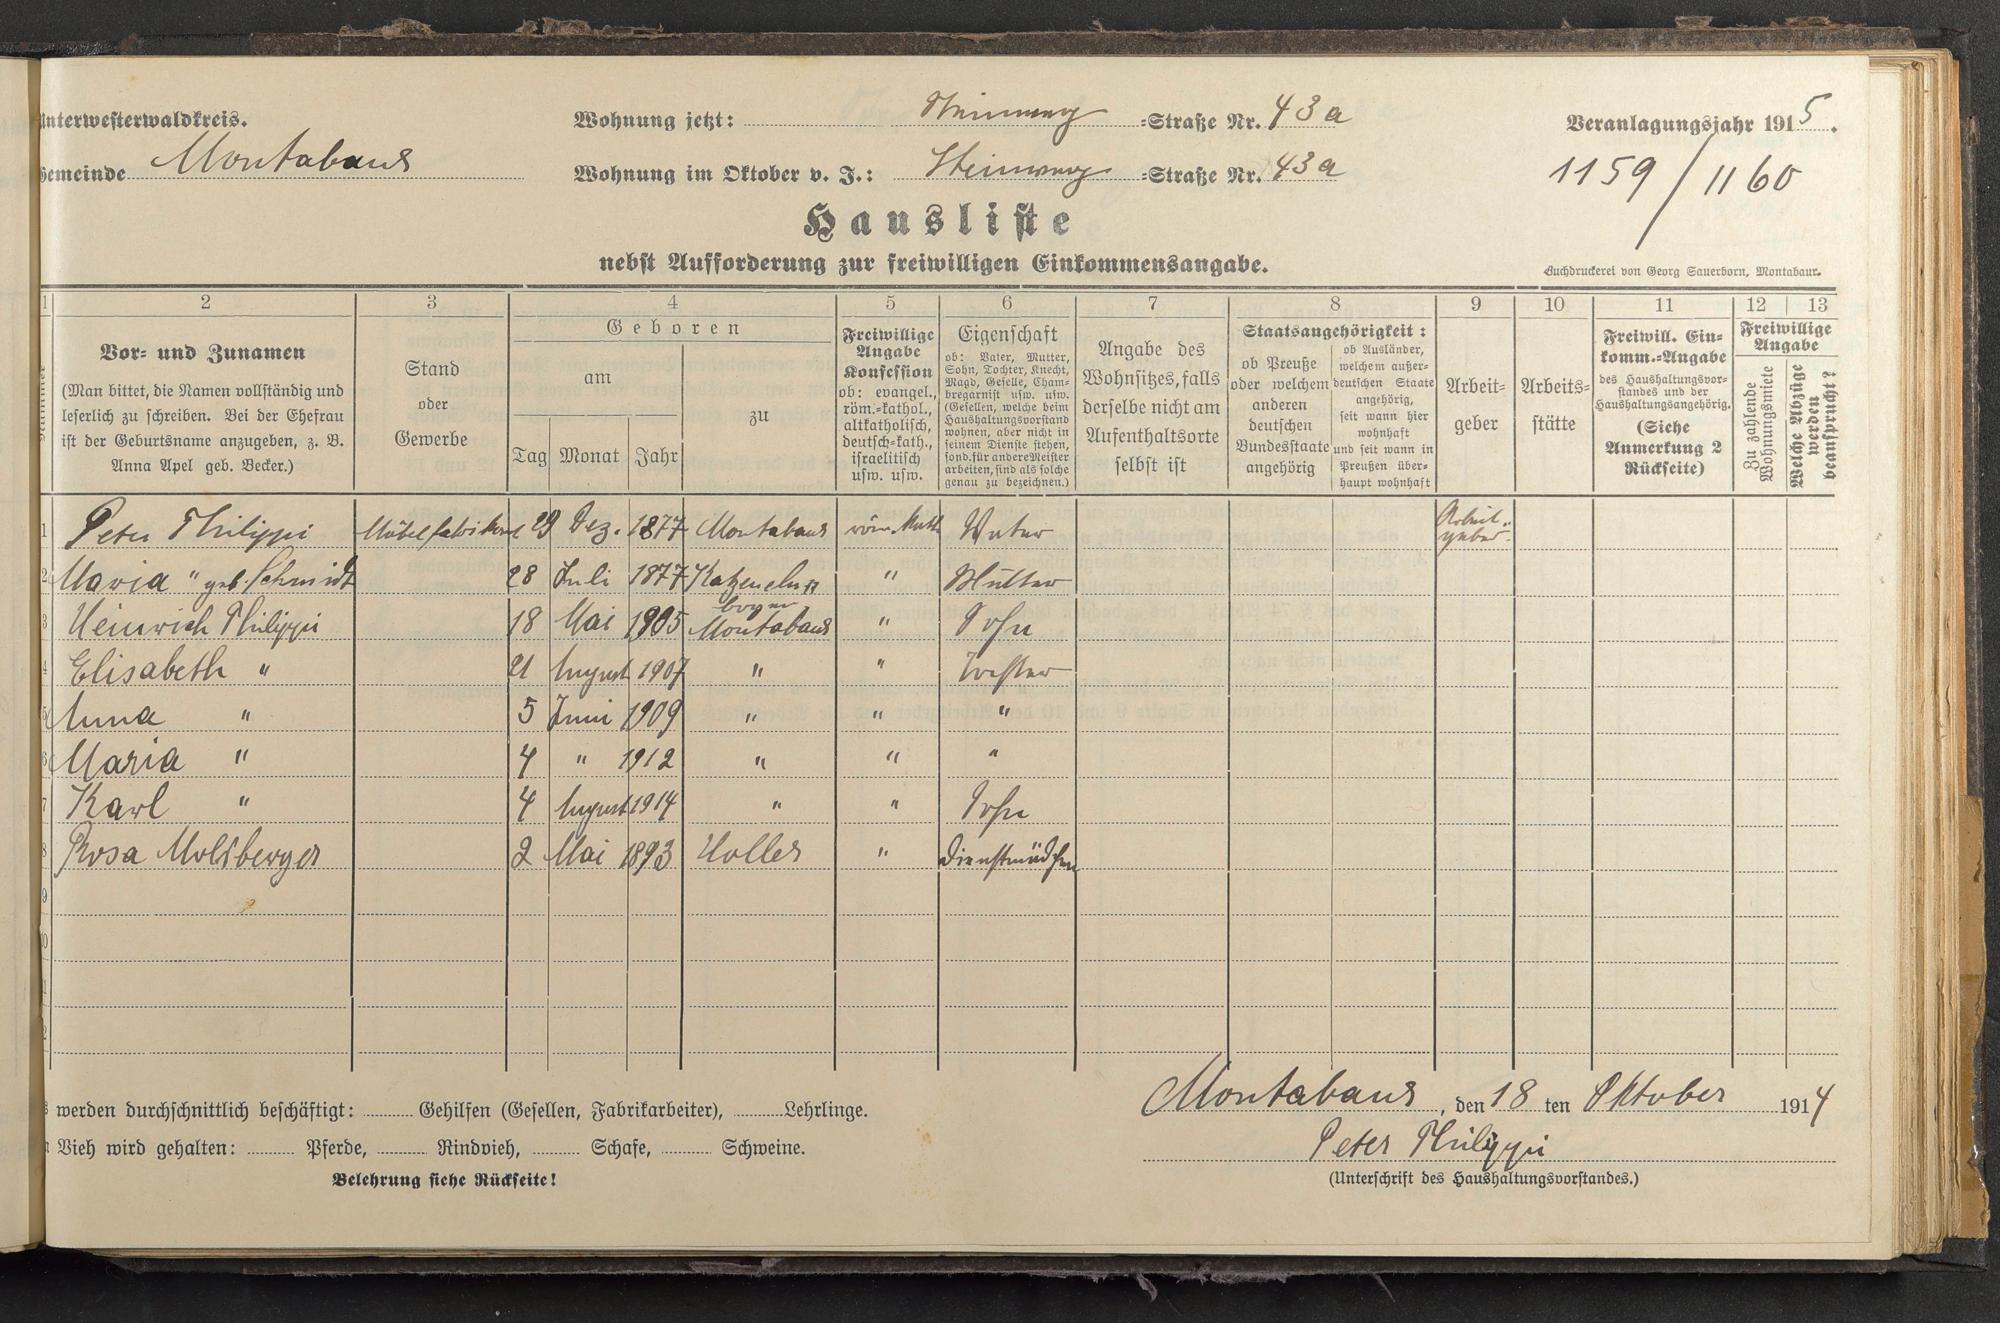 Unterwesterwaldkreis.
Gemeinde Montabaur
Wohnung jetzt: Steinweg =Straße Nr. 43a
Wohnung im Oktober v. J.: Steinweg =Straße Nr. 43a
Veranlagungsjahr 1915.
1159/1160
Hausliste
nebst Aufforderung zur freiwilligen Einkommensangabe.
Buchdruckerei von Georg Sauerborn, Montabaur.
1 2 3 4 5 6 7 8 9 10 11 12 13
Nummer
Vor- und Zunamen
(Man bittet, die Namen vollständig und
leserlich zu schreiben. Bei der Ehefrau
ist der Geburtsname anzugeben, z. B.
Anna Apel geb. Becker.)
Stand
oder
Gewerbe
Geboren
am
Tag Monat Jahr
zu
Freiwillige
Angabe
Konfession
ob: evangel.,
röm.-kathol.,
altkatholisch,
deutsch-kath.,
israelitisch
usw. usw.
Eigenschaft
ob: Vater, Mutter,
Sohn, Tochter, Knecht,
Magd, Geselle, Cham-
bregarnist usw. usw.
(Gesellen, welche beim
Haushaltungsvorstand
wohnen, aber nicht in
seinem Dienste stehen,
sond. für andere Meister
arbeiten, sind als solche
genau zu bezeichnen.)
Angabe des
Wohnsitzes, falls
derselbe nicht am
Aufenthaltsorte
selbst ist
Staatsangehörigkeit:
ob Preuße
oder welchem
anderen
deutschen
Bundesstaate
angehörig
ob Ausländer,
welchem außer-
deutschen Staate
angehörig,
seit wann hier
wohnhaft
und seit wann in
Preußen über-
haupt wohnhaft
Arbeit-
geber
Arbeits-
stätte
Freiwill. Ein-
komm.-Angabe
des Haushaltungsvor-
standes und der
Haushaltungsangehörig.
(Siehe
Anmerkung 2
Rückseite)
Freiwillige
Angabe
Zu zahlende
Wohnungsmiete
Welche Abzüge
werden
beansprucht?
1 Peter Philippi Möbelfabrikant 29 Dez. 1877 Montabaur röm. kath Vater Arbeit-
geber
2 Maria " geb. Schmidt 28 Juli 1877 Katzenelln
bogen " Mutter
3 Heinrich Philippi 18 Mai 1905 Montabaur " Sohn
4 Elisabeth " 21 August 1907 " " Tochter
5 Anna " 5 Juni 1909 " " "
6 Maria " 4 " 1912 " " "
7 Karl " 4 August 1914 " " Sohn
8 Rosa Molsberger 2 Mai 1893 Holler " Dienstmädchen
9
10
werden durchschnittlich beschäftigt: Gehilfen (Gesellen, Fabrikarbeiter), Lehrlinge.
Vieh wird gehalten: Pferde, Rindvieh, Schafe, Schweine.
Belehrung siehe Rückseite!
Montabaur, den 18 ten Oktober 1914
Peter Philippi
(Unterschrift des Haushaltungsvorstandes.)